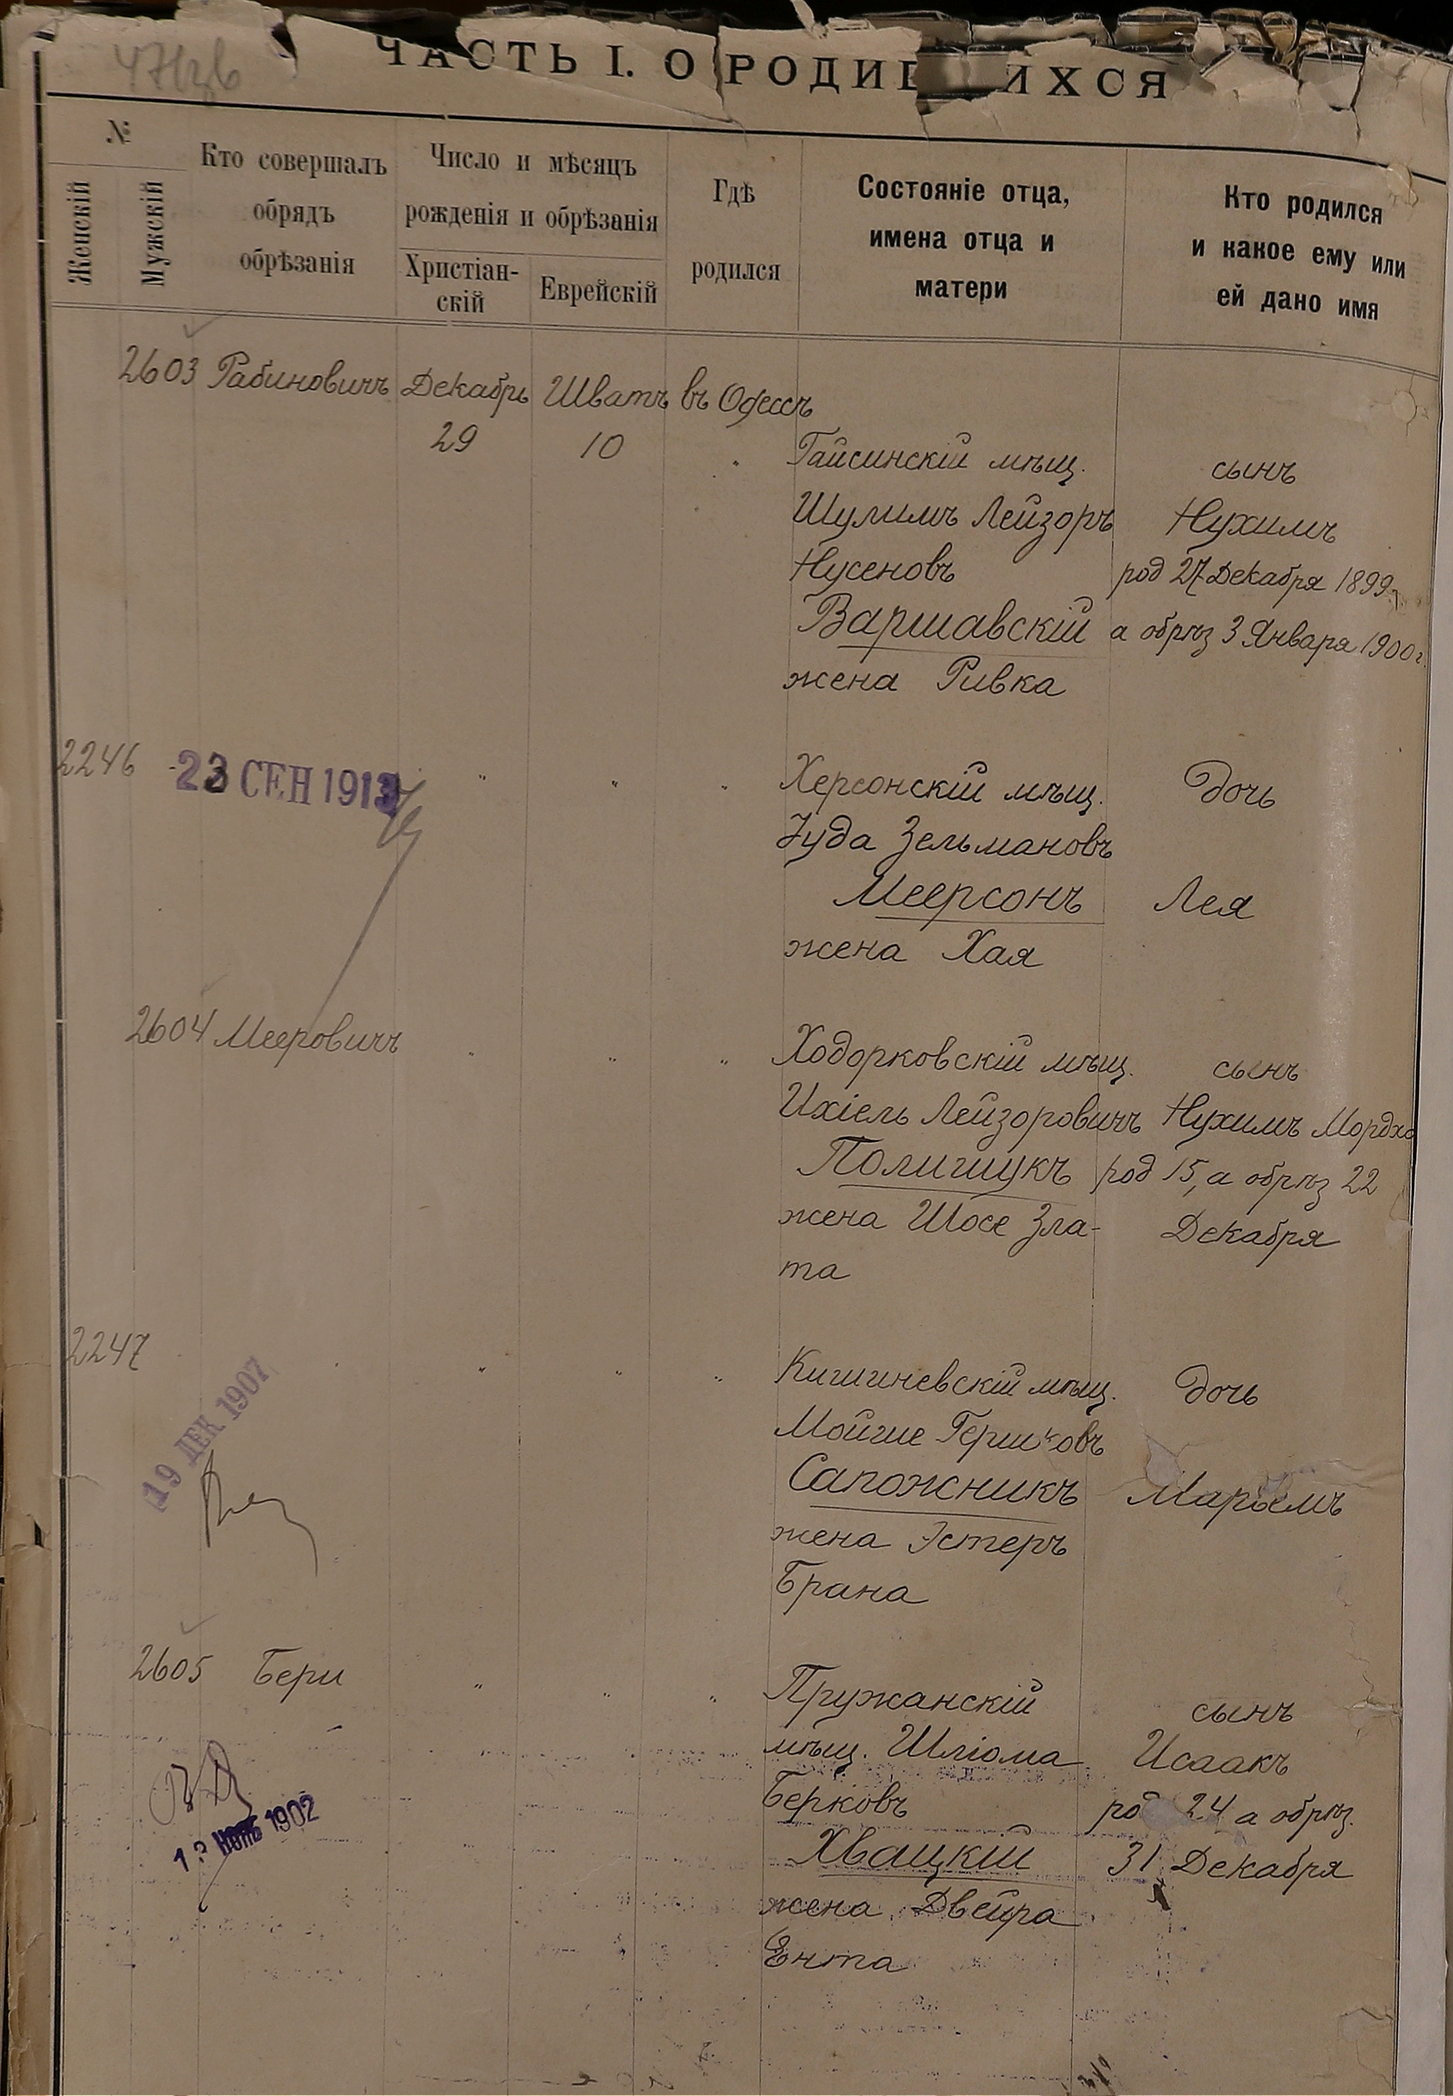 ЧАСТЬ I. О РОДИВШИХСЯ
№
Женскій
Мужскій
Кто совершалъ
обрядъ
обрѣзанія
Число и мѣсяцъ
рожденія и обрѣзанія
Христіан-
скій
Еврейскій
Гдѣ
родился
Состояніе отца,
имена отца и
матери
Кто родился
и какое ему или
ей дано имя
2603 Рабиновичъ Декабрь Шватъ въ Одессѣ
29 10
Гайсинскій мѣщ. сынъ
Шулимъ Лейзоръ Нухимъ
Нусеновъ род 27 Декабря 1899
Варшавскій а обрѣз 3 Января 1900 г.
жена Ривка
2246 23 СЕН 1913 " " " Херсонскій мѣщ. дочь
Іуда Зельмановъ
Меерсонъ Лея
жена Хая
2604 Мееровичъ " " " Ходорковскій мѣщ. сынъ
Ихіель Лейзоровичъ Нухимъ Мордхо
Полищукъ род 15, а обрѣз 22
жена Шосе Зла- Декабря
та
2247 " " " Кишиневскій мѣщ. дочь
19 ДЕК 1907
Мойше Гершковъ
Сапожникъ Марьемъ
жена Эстеръ
Брана
2605 Бери " " " Пружанскій сынъ
мѣщ. Шліома Исаакъ
Берковъ 24 а обрѣз.
1902
Хвацкій 31 Декабря
жена Двейра
Ента